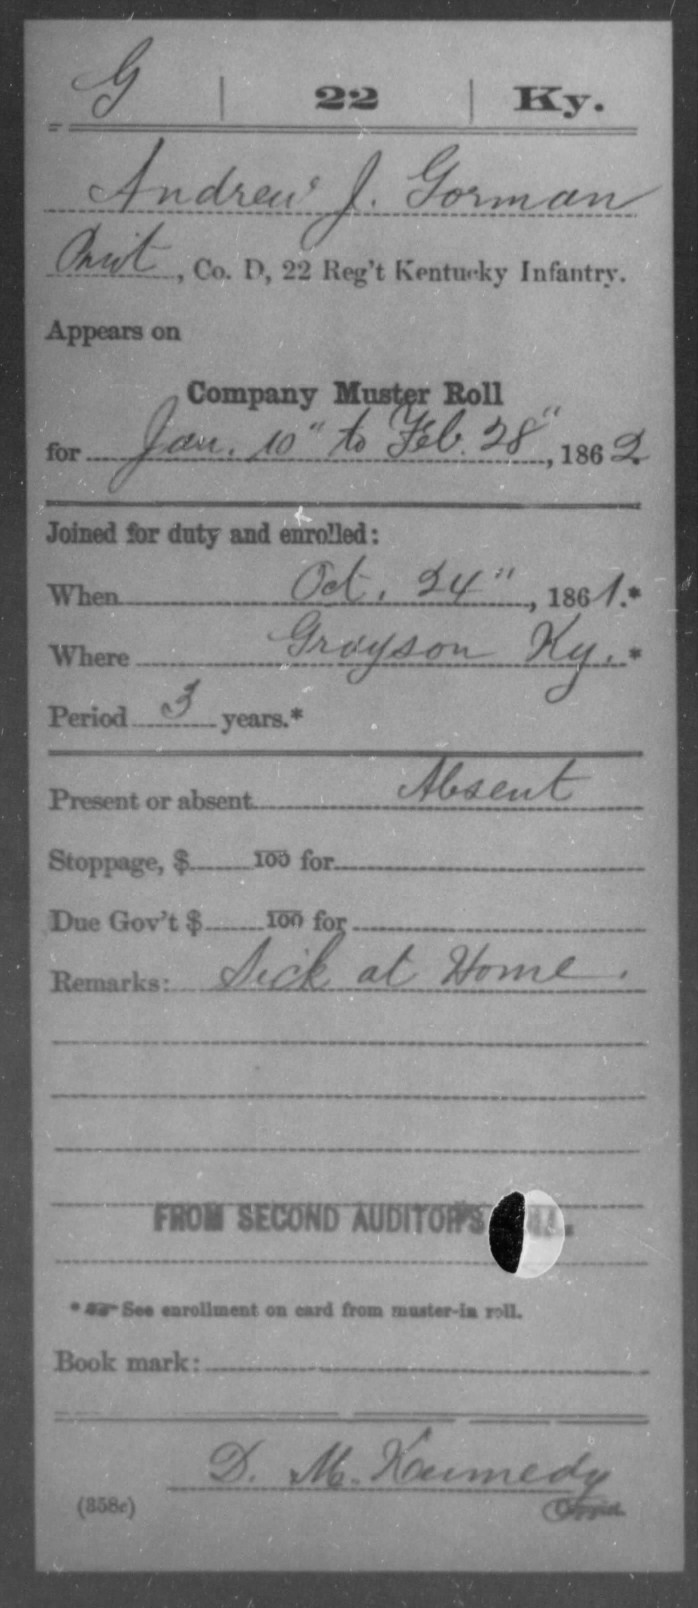 G | 22 | Ky.
Andrew J. Gorman
Privt, Co. D, 22 Reg't Kentucky Infantry.
Appears on
Company Muster Roll
for Jan. 10" to Feb. 28", 1862
Joined for duty and enrolled:
When Oct. 24", 1861.*
Where Grayson Ky.*
Period 3 years.*
Present or absent Absent
Stoppage, $ 100 for
Due Gov't $ 100 for
Remarks: Sick at Home.
FROM SECOND AUDITOR'S ROLL.
* See enrollment on card from muster-in roll.
Book mark:
D. M. Kennedy
(358c)